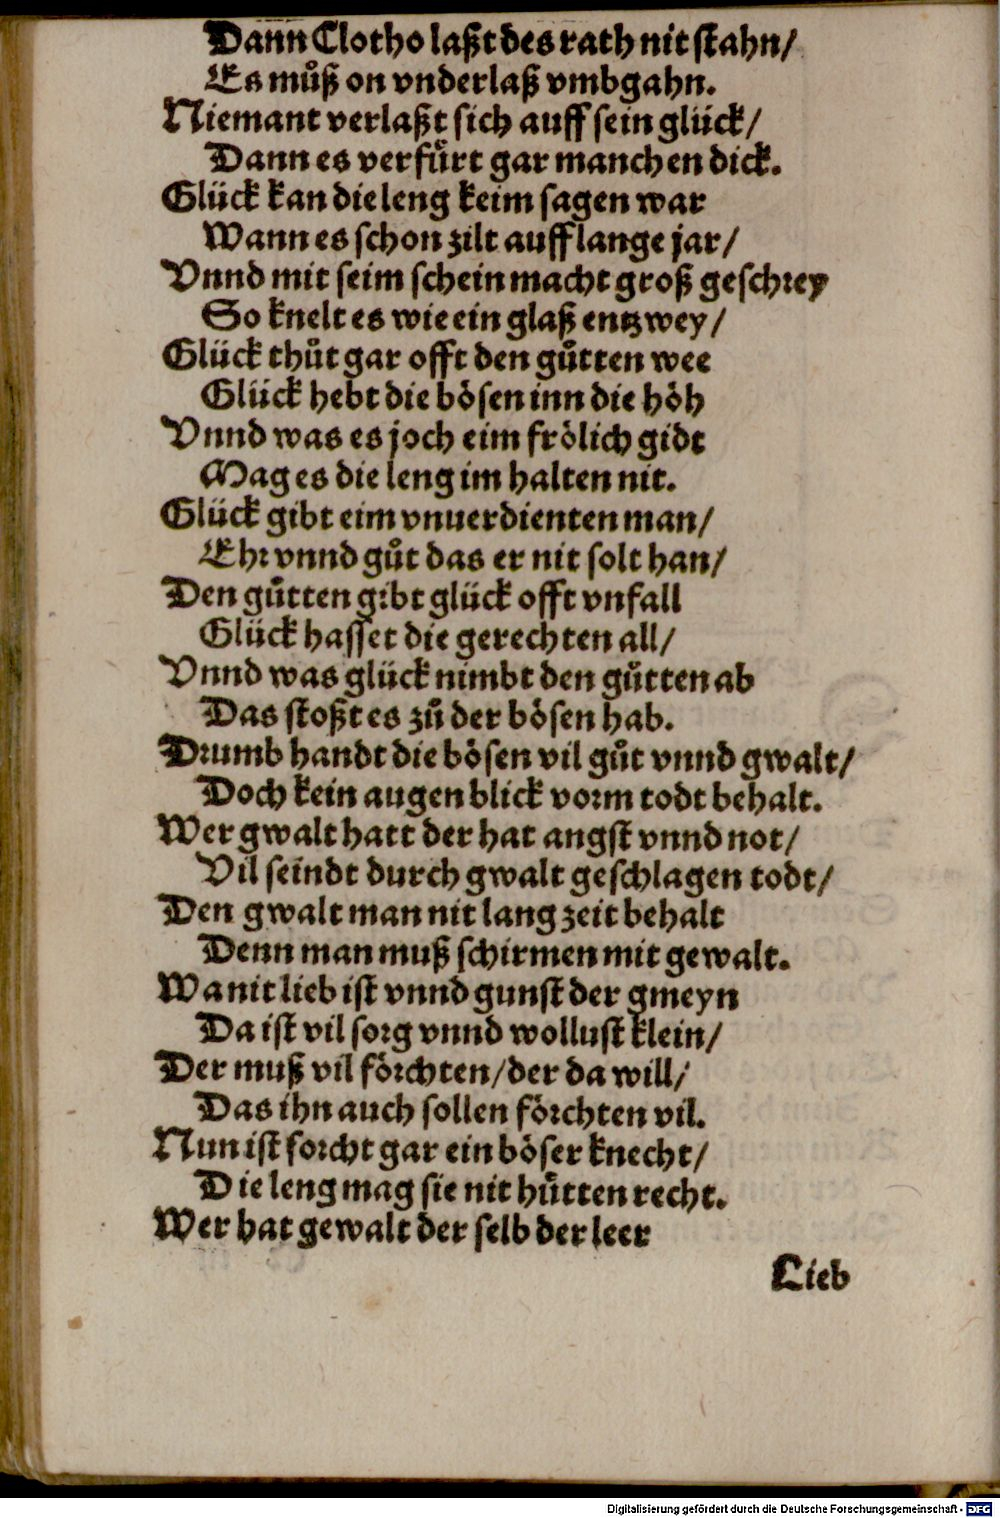 Dann Clotho laßt des rath nit stahn/
Es muͦß on vnderlaß vmbgahn.
Niemant verlaßt sich auff sein glück/
Dann es verfuͤrt gar manchen dick.
Glück kan die leng keim sagen war
Wann es schon zilt auff lange jar/
Vnnd mit seim schein macht groß geschrey
So knelt es wie ein glaß entzwey/
Glück thuͦt gar offt den guͦtten wee
Glück hebt die bösen inn die höh
Vnnd was es joch eim frölich gidt
Mag es die leng im halten nit.
Glück gibt eim vnuerdienten man/
Ehr vnnd guͦt das er nit solt han/
Den guͦtten gibt glück offt vnfall
Glück hasset die gerechten all/
Vnnd was glück nimbt den guͦtten ab
Das stoßt es zuͦ der bösen hab.
Drumb handt die bösen vil guͦt vnnd gwalt/
Doch kein augenblick vorm todt behalt.
Wer gwalt hatt der hat angst vnnd not/
Vil seindt durch gwalt geschlagen todt/
Den gwalt man nit lang zeit behalt
Denn man muß schirmen mit gewalt.
Wa nit lieb ist vnnd gunst der gmeyn
Da ist vil sorg vnnd wollust klein/
Der muß vil förchten/der da will/
Das ihn auch sollen förchten vil.
Nun ist forcht gar ein böser knecht/
Die leng mag sie nit huͤtten recht.
Wer hat gewalt der selb der leer
Lieb
Digitalisierung gefördert durch die Deutsche Forschungsgemeinschaft - DFG